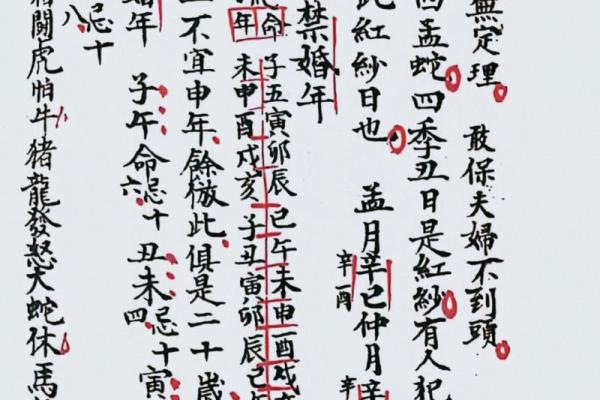 無定理 敢保夫婦不到頭
四孟蛇四季丑日是紅紗有人犯
此紅紗日也 孟月辛巳仲月辛
辛酉
辛
禁婚年
命 子丑寅卯辰巳午未申酉戌
年 未申酉戌亥子丑寅卯辰巳
不宜申年餘倣此俱是二十歲
婚年 子午命忌十 丑未忌十寅
六
四
忌十
八
鬪虎怕牛猪龍發怒犬蛇休馬